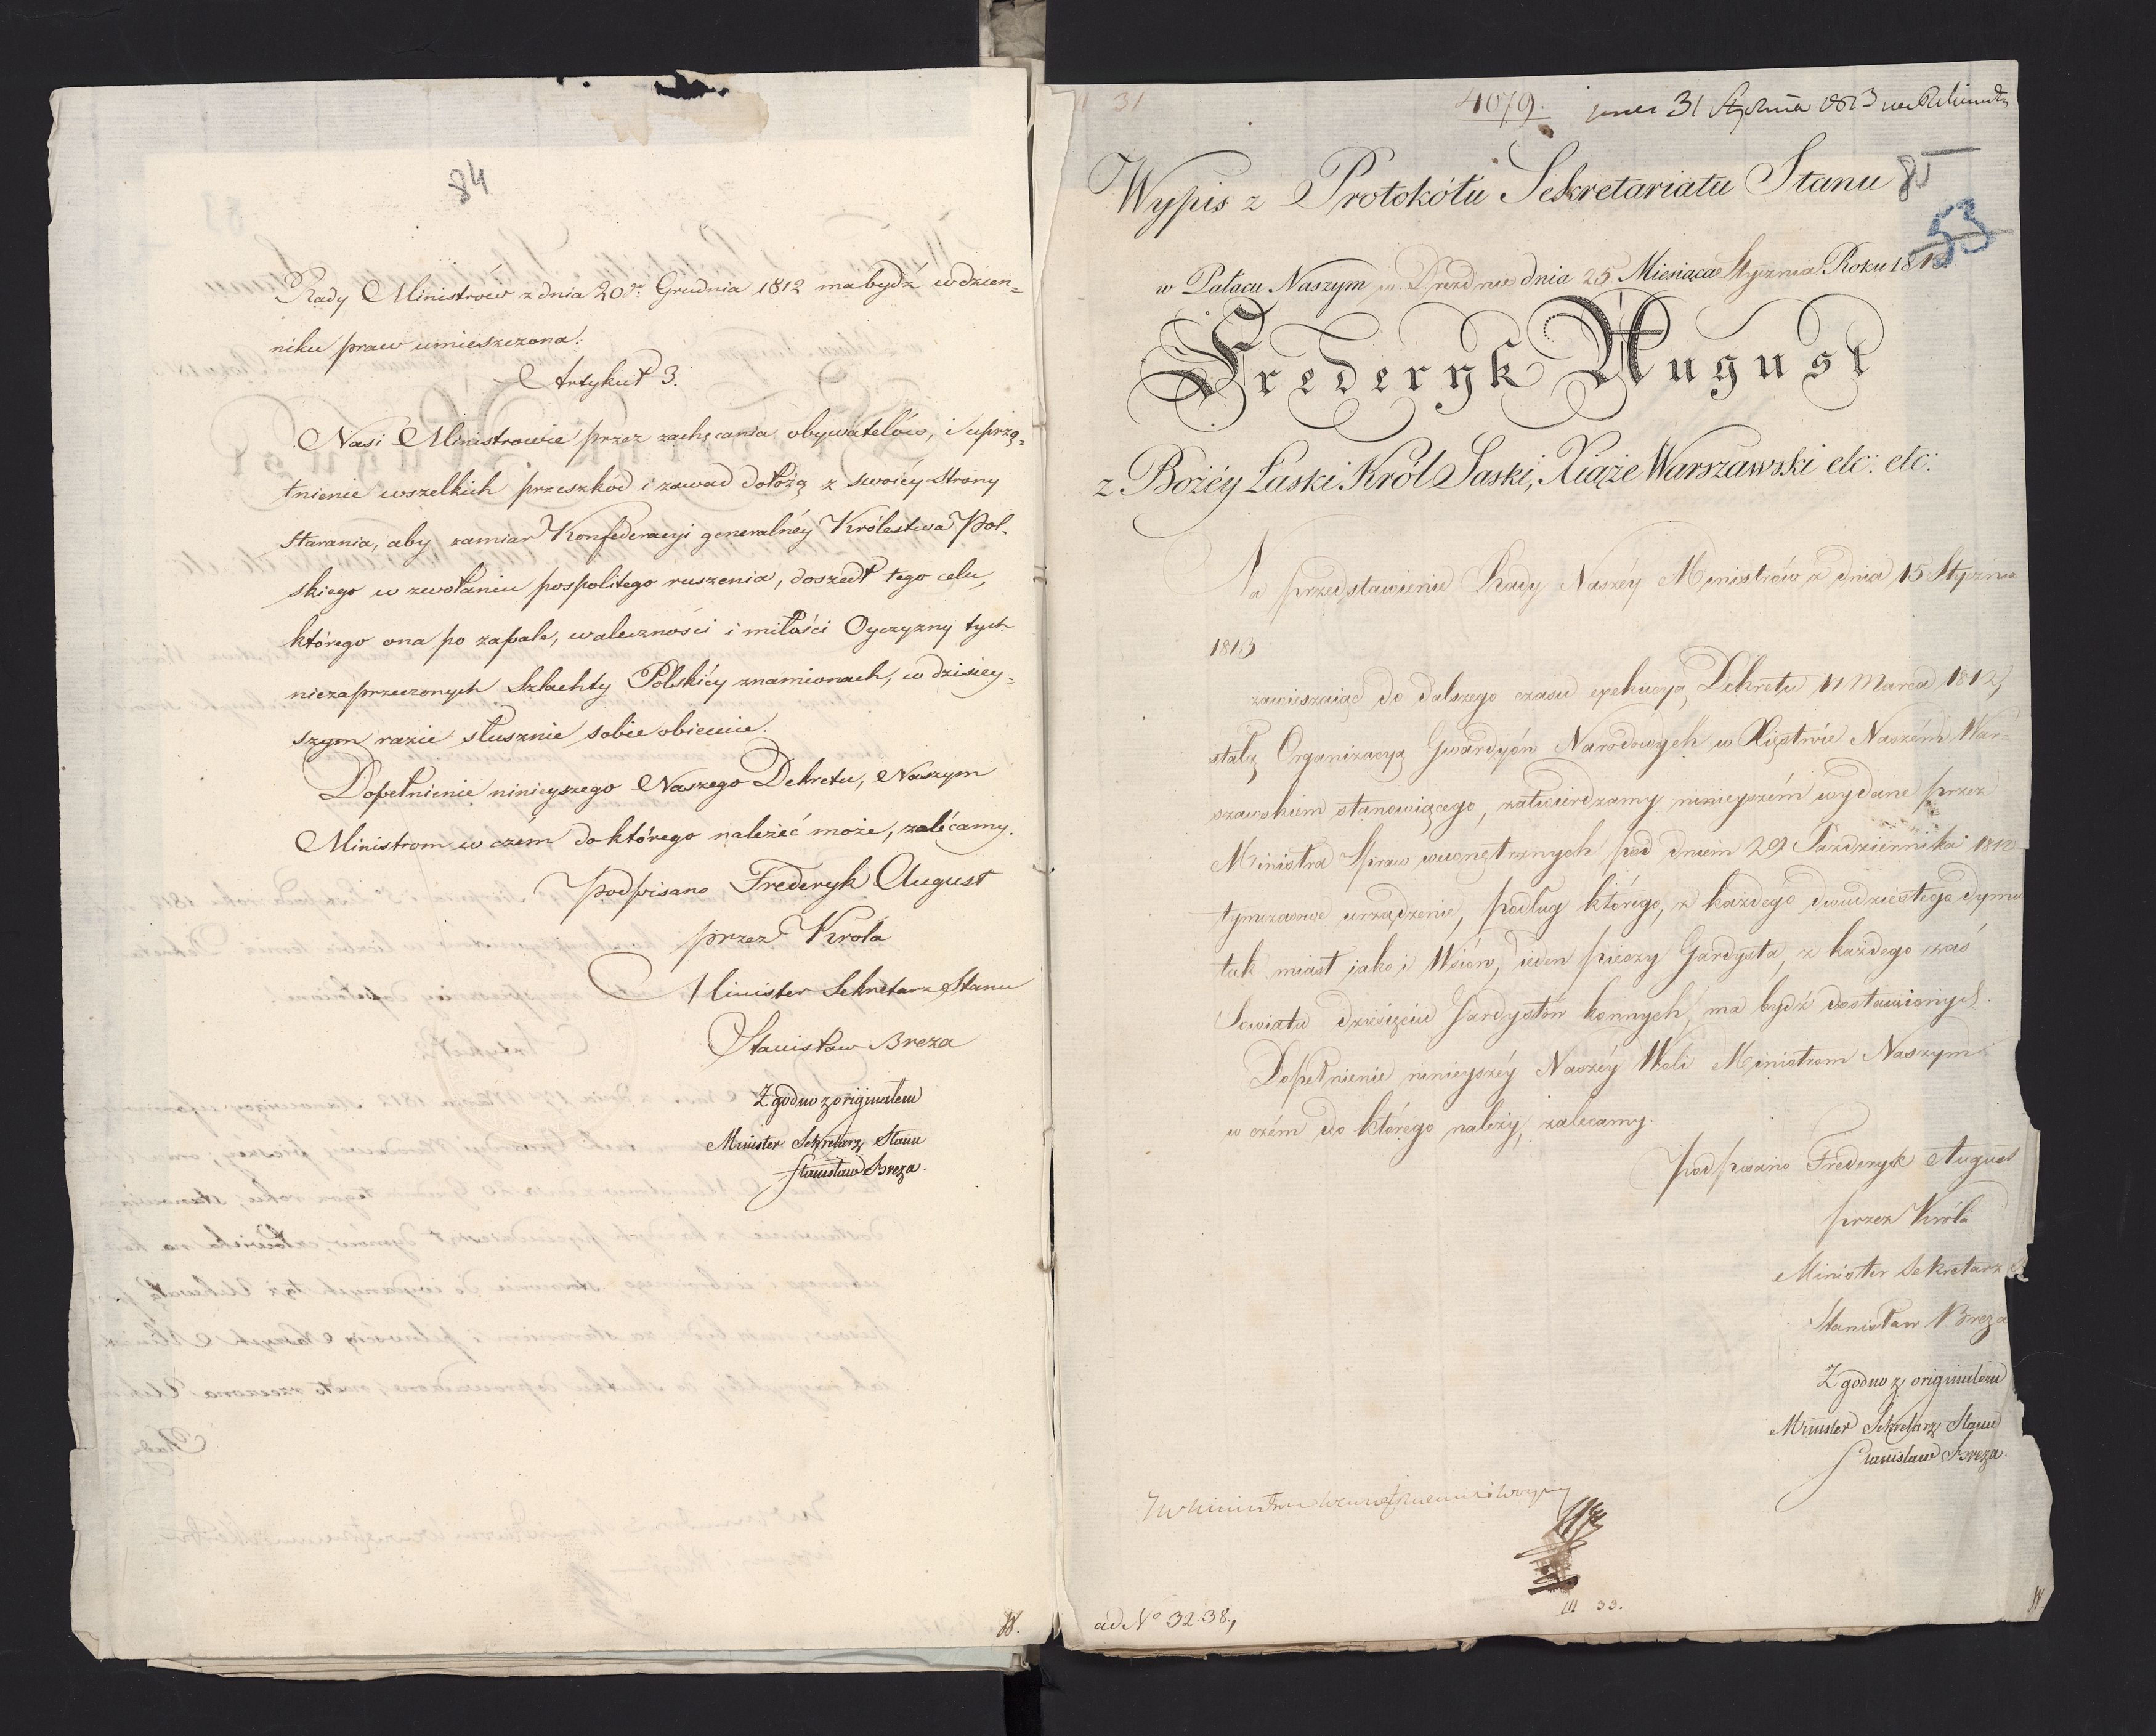 84
Rady Ministrów z dnia 20go Grudnia 1812 ma bydź w dzien=
niku praw umieszczona.
Artykuł 3.
Nasi Ministrowie przez zachęcania obywatelów, i uprzą=
tnienie wszelkich przeszkod i zawad dołożą z swoiéy strony
starania, aby zamiar Konfederacyi generalnéy Królestwa Pol-
skiego w zwołaniu pospolitego ruszenia, doszedł tego celu,
którego ona po zapale, waleczności i miłości Oyczyzny tych
niezaprzeczonych Szlachty Polskiéy znamionach, w dzisiey=
szym razie słusznie sobie obiecuie.
Dopełnienie ninieyszego Naszego Dekretu, Naszym
Ministrom w czém do którego należeć może, zalécamy.
podpisano Frederyk August
przez Króla
Minister Sekretarz Stanu
Stanisław Breza
Zgodno z originałem
Minister Sekretarz Stanu
Stanisław Breza.
W.
31
4079. 31 Stycznia 1813
Wypis z Protokółu Sekretariatu Stanu
85
53
w Pałacu Naszym w Dreźdnie dnia 25 Miesiąca Stycznia Roku 1813
Frederyk August
z Bożéy Łaski Król Saski, Xiąże Warszawski etc: etc:
Na przedstawienie Rady Naszéy Ministrów z dnia 15 Stycznia
1813
zawieszaiąc do dalszego czasu exekucyą Dekretu 17 Marca 1812,
stałą Organizacyą Gwardyów Narodowych w Xięstwie Naszém War-
szawskiem stanowiącego, zatwierdzamy ninieyszém wydane przez
Ministra Spraw wewnętrznych pod dniem 29 Października 1812
tymczasowe urządzenie, podług którego, z każdego dwudziestego dymu
tak miast iako i Wsiów, ieden pieszy Gardysta, z każdego zaś
Powiatu dziesięciu Gardystów konnych, ma bydź dostawionych.
Dopełnienie ninieyszéy Naszéy Woli Ministrom Naszym
w czém do którego należy, zalecamy.
podpisano Frederyk August
przez Króla
Minister Sekretarz
Stanisław Breza
Zgodno z originałem
Minister Sekretarz Stanu
Stanisław Breza.
III 33.
ad No 3238.,
W